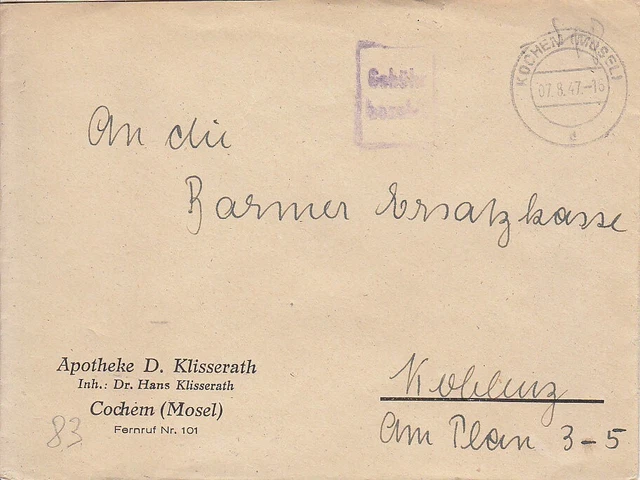 Gebühr
bezahlt
KOCHEM (MOSEL)
07.8.47.-16
d
An die
Barmer Ersatzkasse
Apotheke D. Klisserath
Inh.: Dr. Hans Klisserath
Cochem (Mosel)
Fernruf Nr. 101
83
Koblenz
Am Plan 3-5